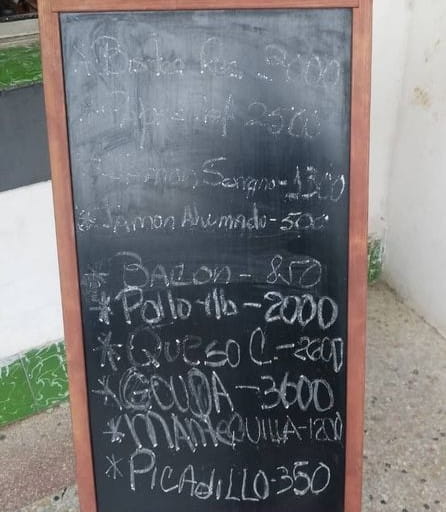 * - 2000
2500
Jamon Serrano - 1300
* Jamon Ahumado - 500
* Bacon - 850
* Pollo 1lb - 2000
* Queso C. - 2600
* GOUDA - 3600
* MANTEQUILLA - 1200
* PICADILLO - 350